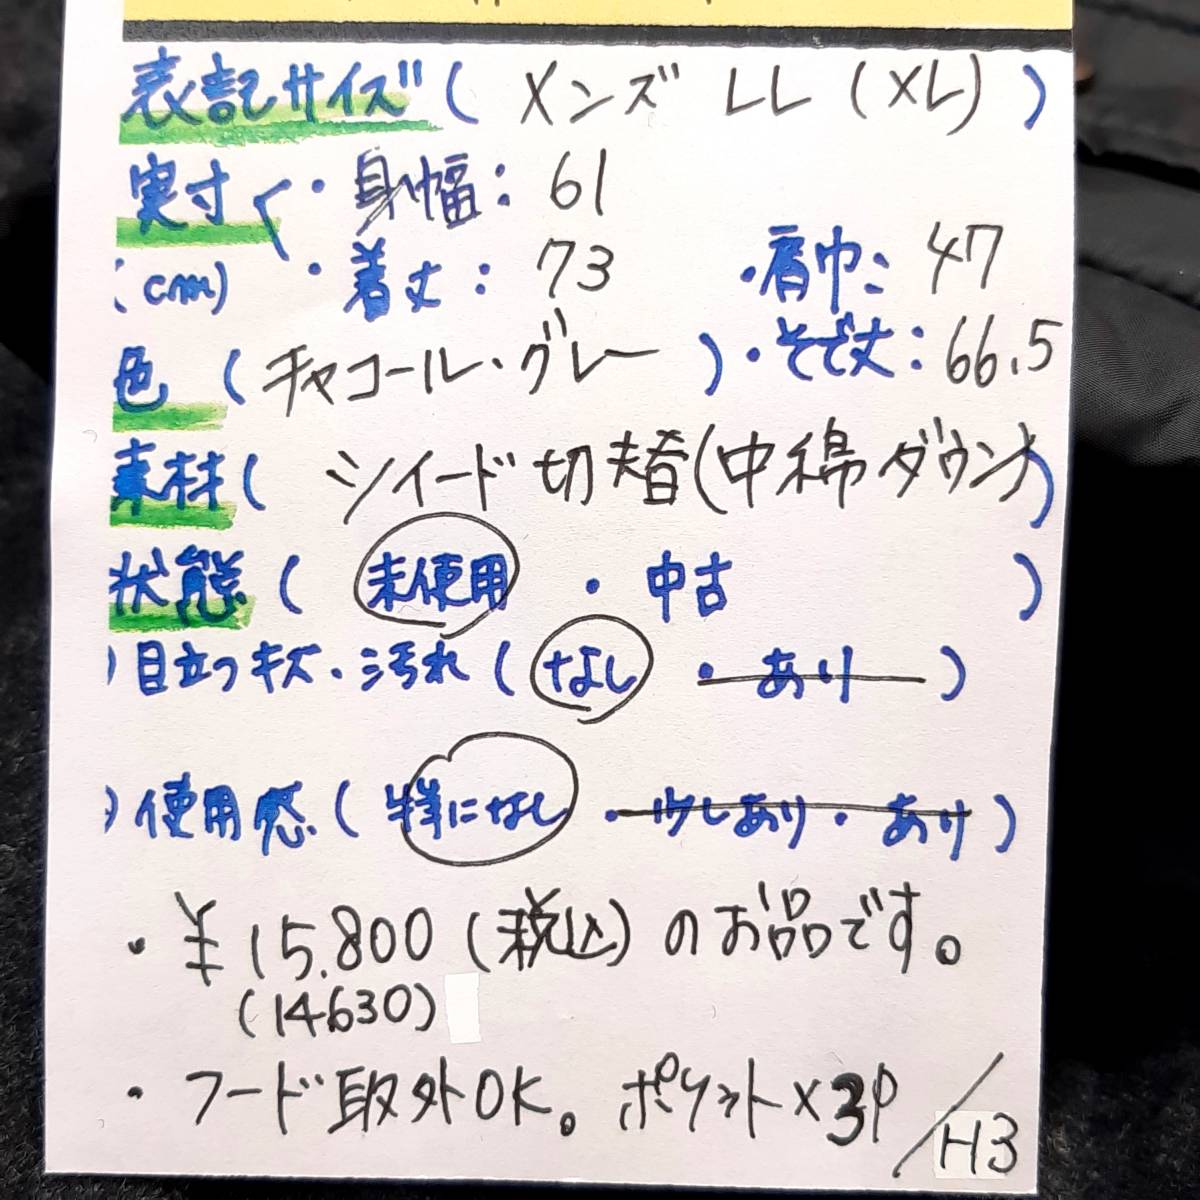 表記サイズ( メンズ LL (XL) )
実寸 ・身幅: 61
(cm) ・着丈: 73 ・肩巾: 47
色 (チャコール・グレー ) ・そで丈: 66.5
素材( ツイード切替(中綿ダウン)
状態( 未使用 ・ 中古 )
)目立つキズ・汚れ( なし ・ あり )
)使用感( 特になし ・少しあり・あり )
・¥15.800(税込)のお品です。
(14630)
・フード取外OK。ポケット×3P
H3